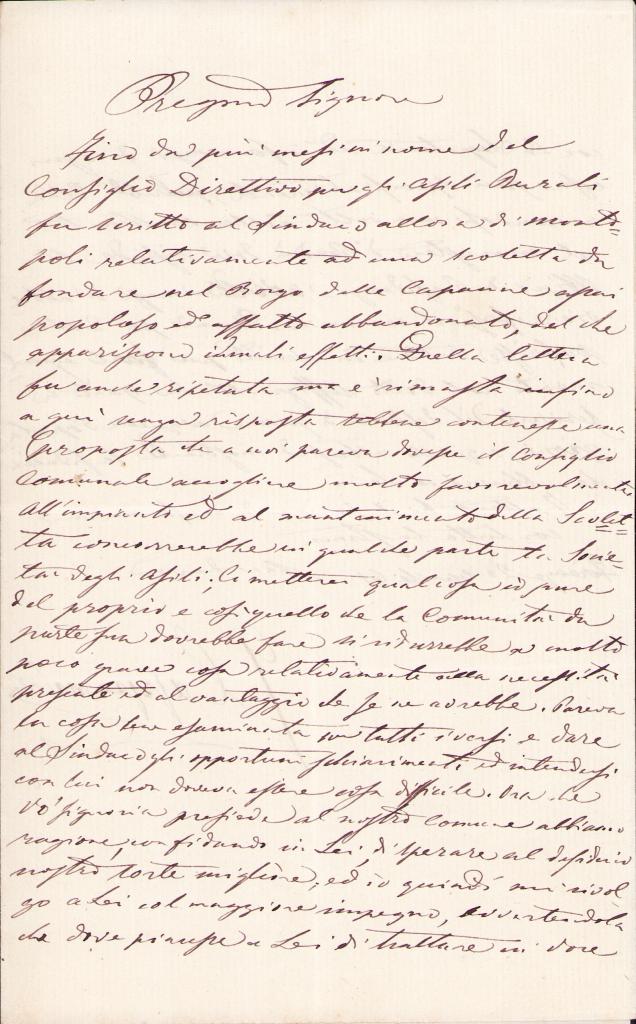 Pregmo Signore
Fino da più mesi in nome del
Consiglio Direttivo per gli Asili Rurali
fu scritto al Sindaco allora di Monto=
poli relativamente ad una scoletta da
fondare nel Borgo delle Capanne assai
popoloso ed affatto abbandonato, del che
appariscono i mali effetti. Quella lettera
fu anche ripetuta ma è rimasta infino
a qui senza risposta sebbene contenesse una
proposta che a noi pareva dovesse il Consiglio
Comunale accogliere molto favorevolmente
All'impianto ed al mantenimento della Scolet=
ta concorrerebbe in qualche parte la Socie=
tà degli Asili, ci metterei qualcosa io pure
del proprio e così quello che la Comunità da
parte sua dovrebbe fare si ridurrebbe a molto
poco grave cosa relativamente alla necessità
presente ed al vantaggio che se ne avrebbe. Pareva
la cosa ben esaminata su tutti i versi e dare
al Sindaco gli opportuni schiarimenti ed intendersi
con lui non doveva essere cosa difficile. Ora che
Vo' Signoria presiede al nostro Comune abbiamo
ragione, confidando in Lei, di sperare al desiderio
nostro sorte migliore, ed io quindi mi rivol=
go a Lei col maggiore impegno, avvertendola
che dove piacesse a Lei di trattare in voce